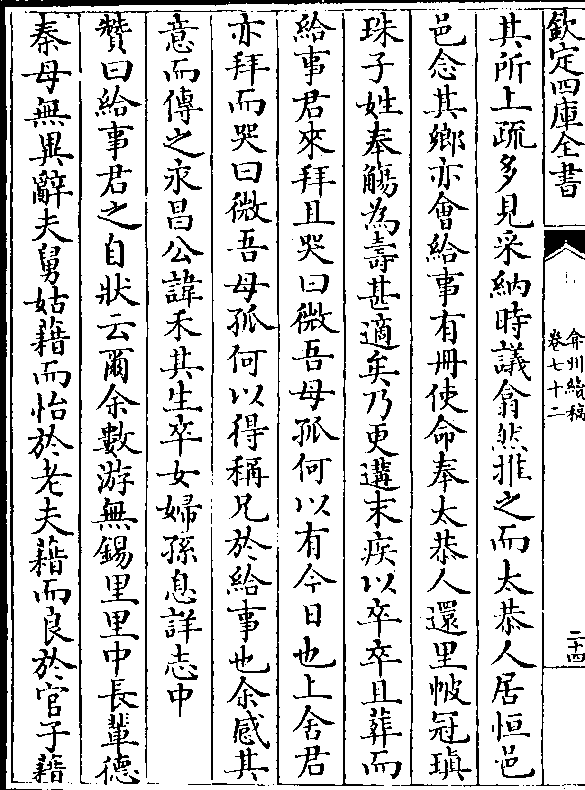 欽定四庫全書
弇州續稿
卷七十二
二十四
其所上疏多見采納時議翕然推之而太恭人居恒邑
邑念其鄉亦會給事有冊使命奉太恭人還里帔冠瑱
珠子姓奉觴為壽甚適矣乃更遘末疾以卒卒且葬而
給事君來拜且哭曰微吾母孤何以有今日也上舍君
亦拜而哭曰微吾母孤何以得稱兄於給事也余感其
意而傳之永昌公諱禾其生卒女婦孫息詳志中
贊曰給事君之自狀云爾余數游無錫里里中長輩德
秦母無異辭夫舅姑藉而怡於老夫藉而良於官子藉